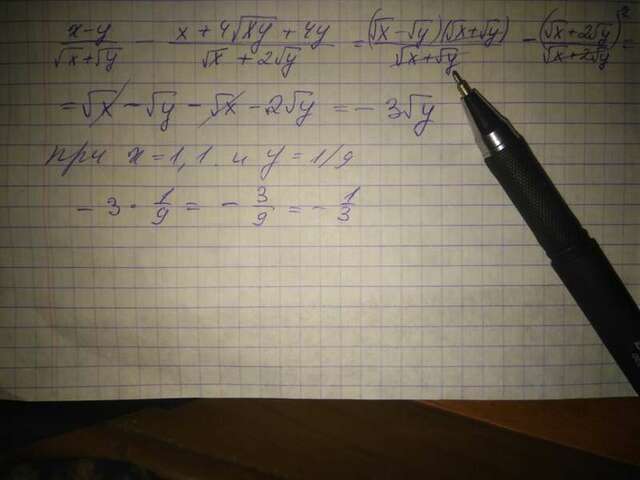 (x-y)/(√x+√y) - (x+4√xy+4y)/(√x+2√y) = (√x-√y)(√x+√y)/(√x+√y) - (√x+2√y)²/(√x+2√y) =
= √x - √y - √x - 2√y = - 3√y
при x=1,1. и y=1/9
- 3 · 1/9 = - 3/9 = - 1/3